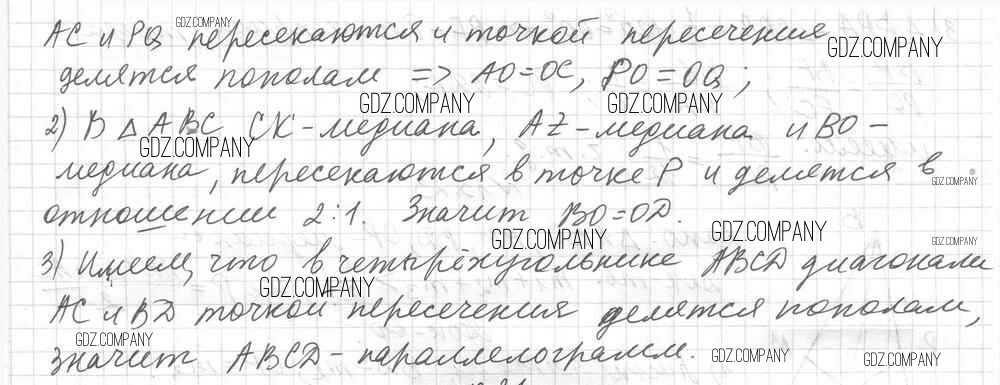 AC и PQ пересекаются и точкой пересечения
делятся пополам => AO=OC, PO=OQ;
2) В △ABC CK-медиана, AZ-медиана и BO-
медиана, пересекаются в точке P и делятся в
отношении 2:1. Значит BO=OD.
3) Имеем, что в четырёхугольнике ABCD диагонали
AC и BD точкой пересечения делятся пополам,
значит ABCD-параллелограмм.
GDZ.COMPANY
GDZ.COMPANY
GDZ.COMPANY
GDZ.COMPANY
GDZ.COMPANY
GDZ.COMPANY
GDZ.COMPANY
GDZ.COMPANY
GDZ.COMPANY
GDZ.COMPANY
GDZ.COMPANY
GDZ.COMPANY
GDZ.COMPANY